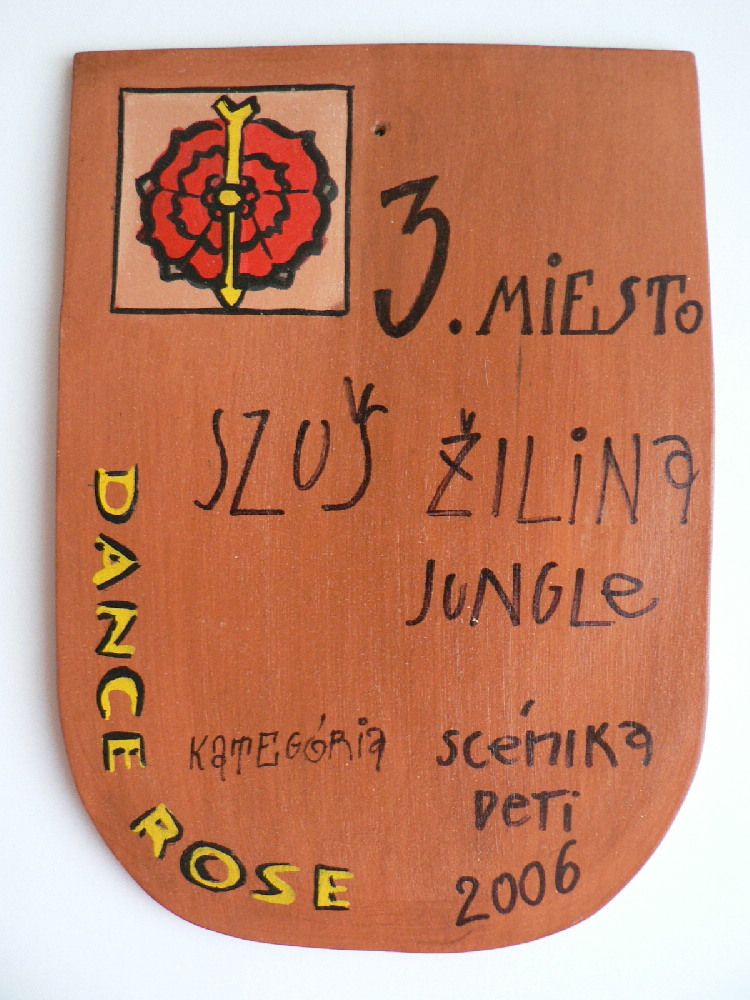 3. MIESTO
SZUŠ ŽILINA
JUNGLE
KATEGÓRIA SCÉNIKA
DETI
2006
DANCE ROSE